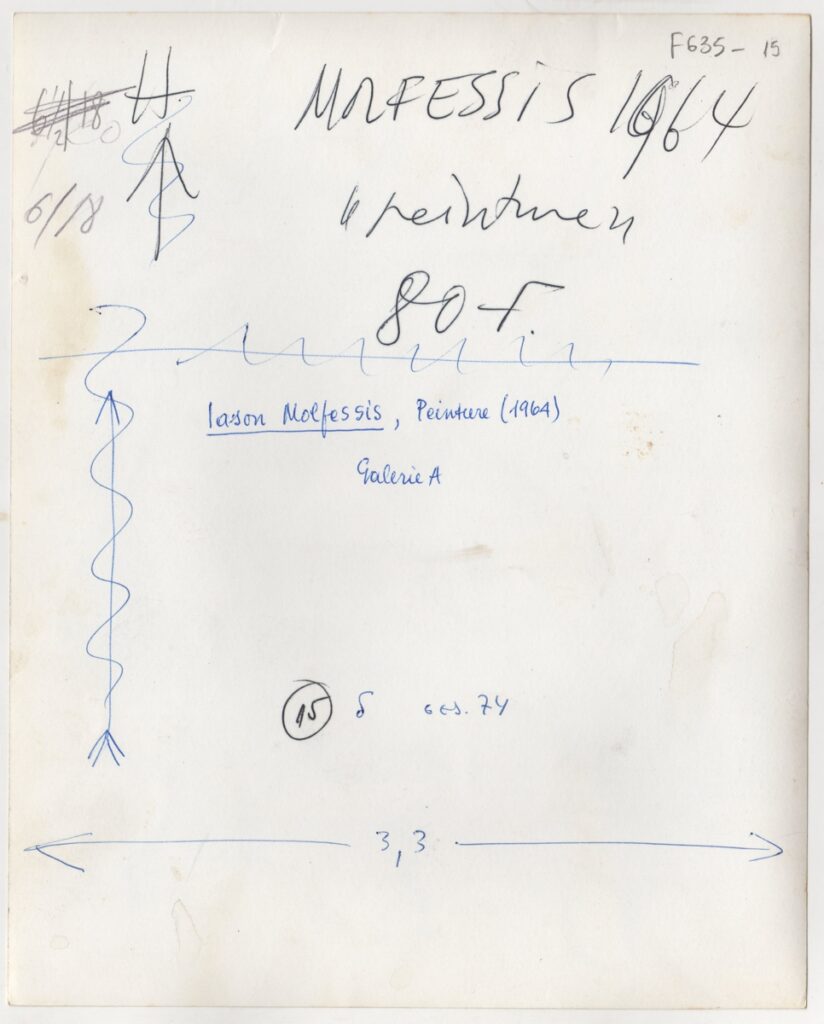 F635-15
H
MOLFESSIS 1964
6/18
"peinture"
80 F.
Iason Molfessis, Peinture (1964)
Galerie A
15 6 ses. 74
3,3